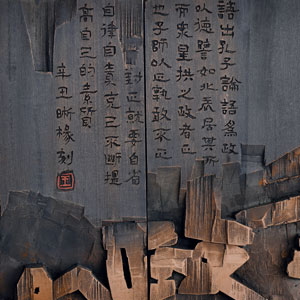 語出孔子論語為政
以德譬如北辰居其所
而眾星拱之政者正
也子帥以正孰敢不正
對正就要自省
自律自素克己不斷提
高自己的素質
辛丑晰椽刻